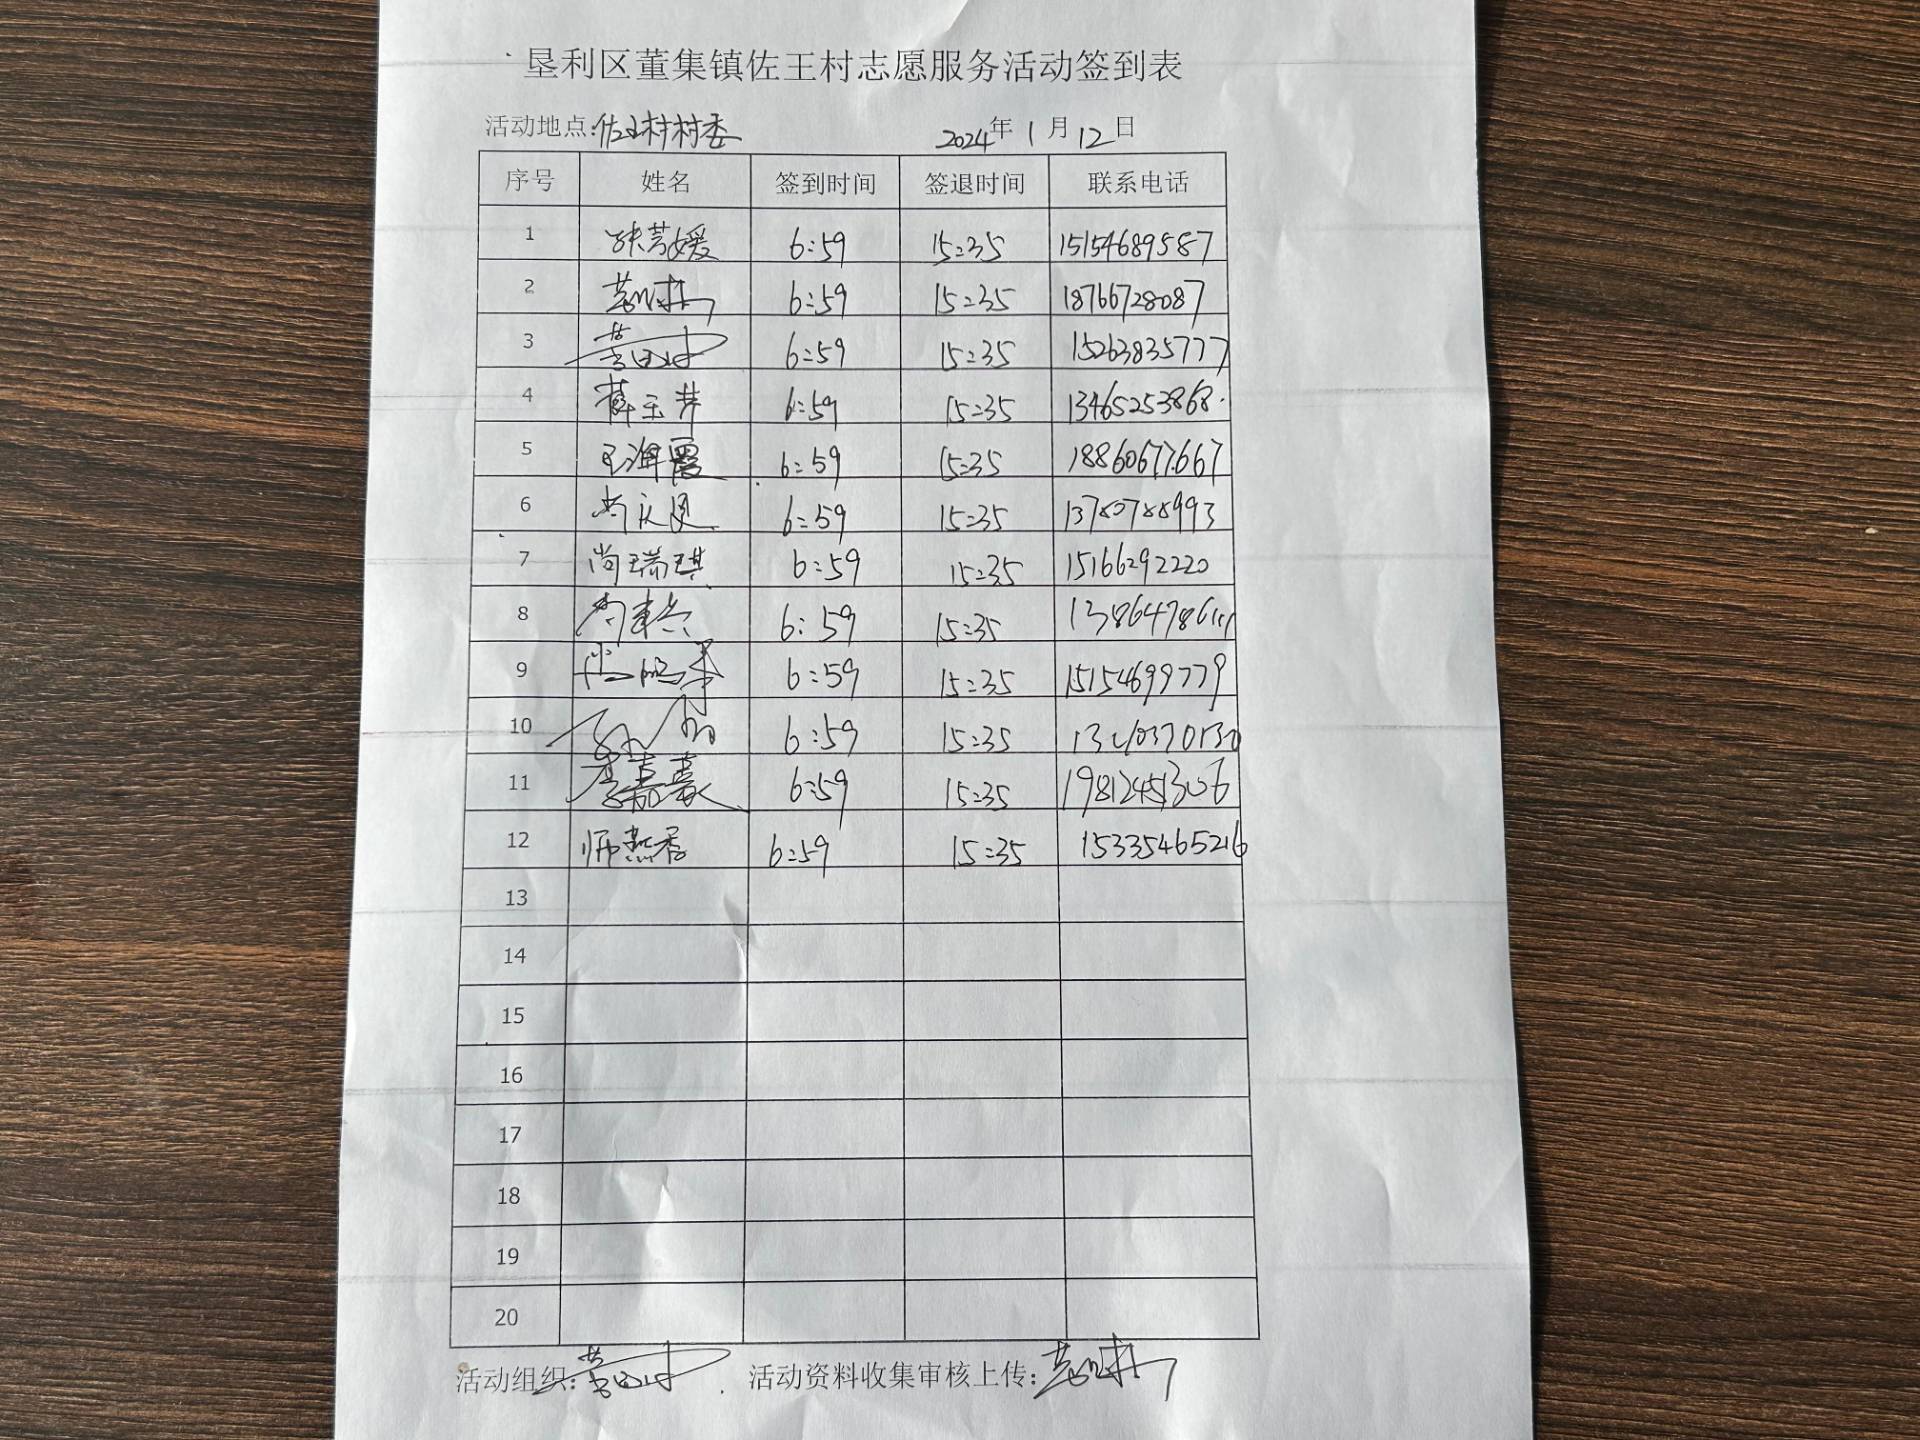 垦利区董集镇佐王村志愿服务活动签到表
活动地点:佐王村村委 2024年1月12日
序号 姓名 签到时间 签退时间 联系电话
1 张芳媛 6:59 15:35 15154689587
2 6:59 15:35 18766728087
3 6:59 15:35 15263835777
4 薛玉井 6:59 15:35 13465253868
5 王海霞 6:59 15:35 18860677667
6 6:59 15:35 13780788993
7 尚瑞琪 6:59 15:35 15166292220
8 6:59 15:35
9 6:59 15:35 15154699779
10 6:59 15:35
11 李嘉豪 6:59 15:35 19812451306
12 师燕香 6:59 15:35 15335465216
13
14
15
16
17
18
19
20
活动组织: 活动资料收集审核上传: